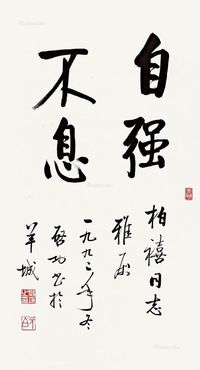 自强
不息
柏禧同志
雅属
一九九二年冬
启功书于
羊城